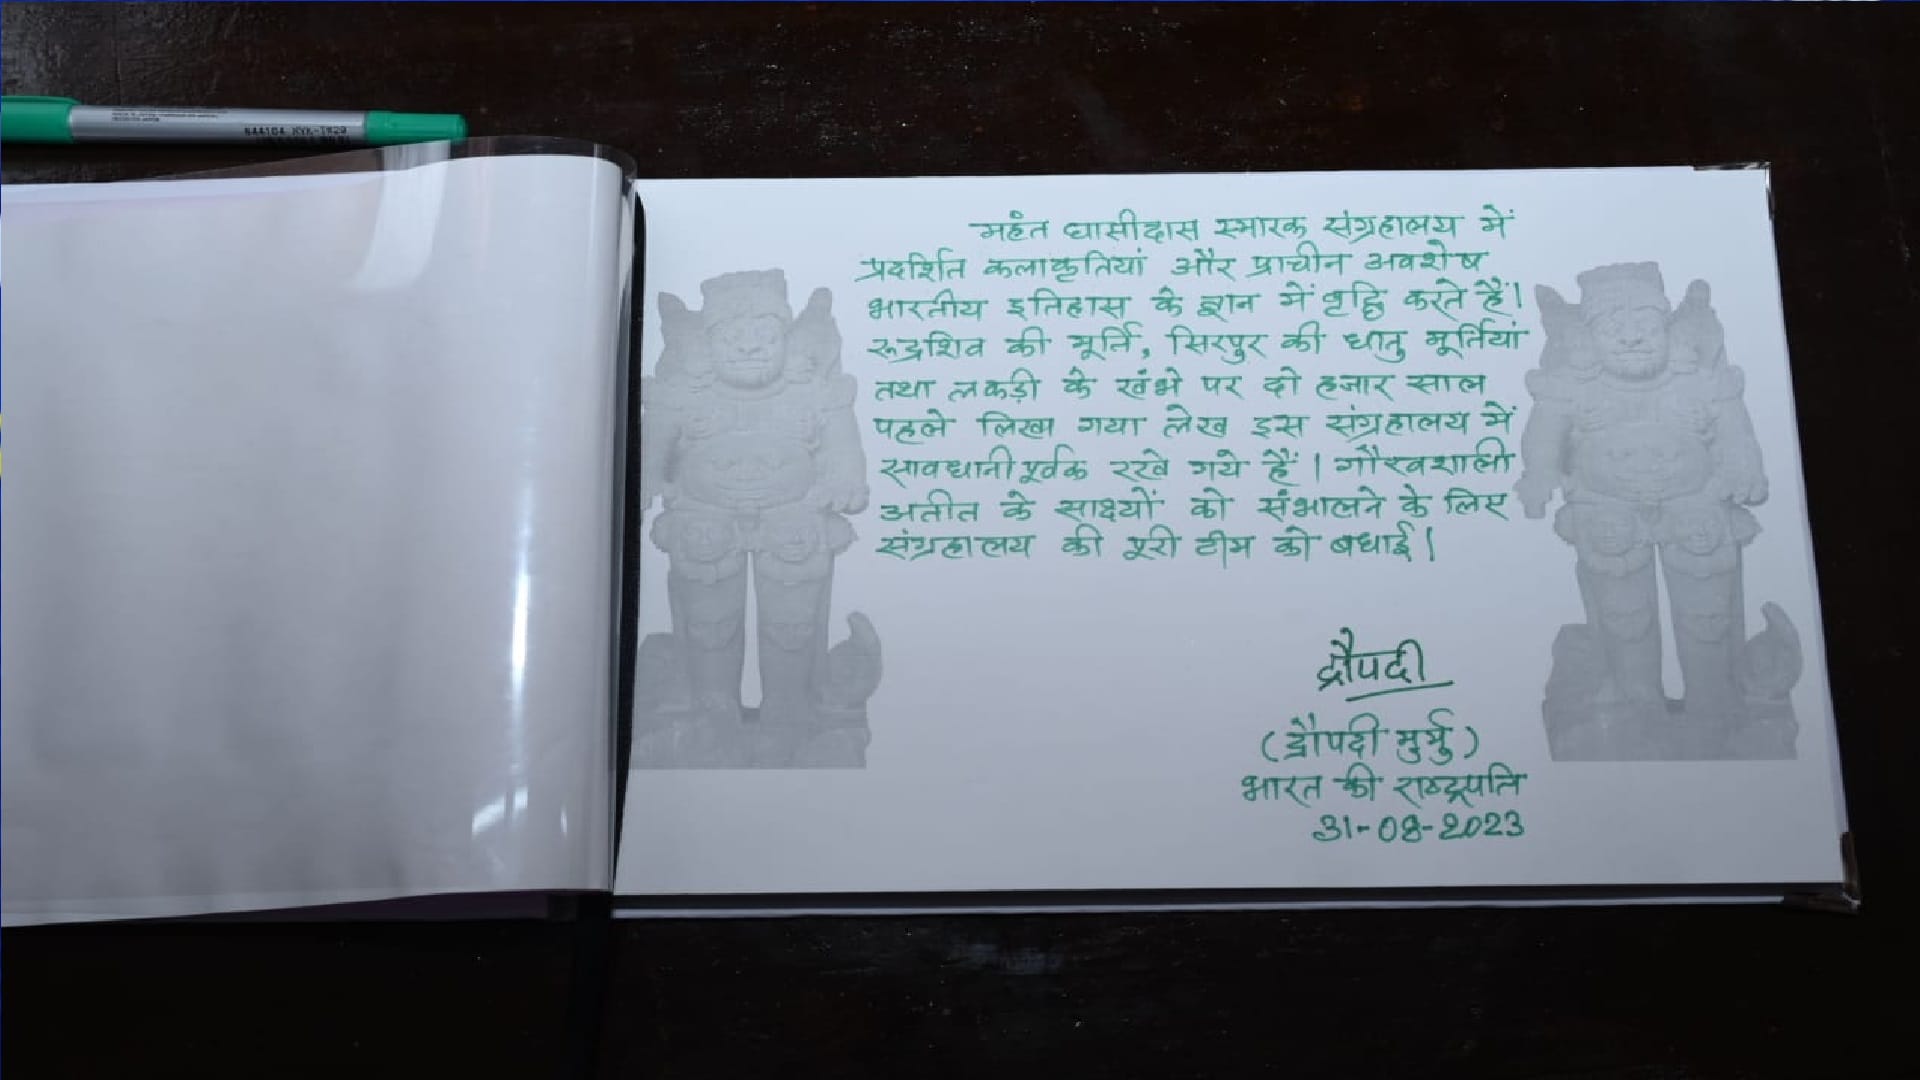 644164 NYK-TW20
महंत घासीदास स्मारक संग्रहालय में
प्रदर्शित कलाकृतियां और प्राचीन अवशेष
भारतीय इतिहास के ज्ञान में वृद्धि करते हैं।
रूद्रशिव की मूर्ति, सिरपुर की धातु मूर्तियां
तथा लकड़ी के खंभे पर दो हजार साल
पहले लिखा गया लेख इस संग्रहालय में
सावधानीपूर्वक रखे गये हैं। गौरवशाली
अतीत के साक्ष्यों को संभालने के लिए
संग्रहालय की पूरी टीम को बधाई।
द्रौपदी
(द्रौपदी मुर्मु)
भारत की राष्ट्रपति
31-08-2023